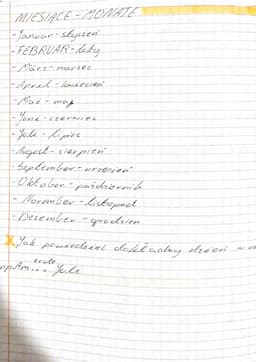 MIESIĄCE - MONATE
- Januar - styczeń
- FEBRUAR - luty
- März - marzec
- April - kwiecień
- Mai - maj
- Juni - czerwiec
- Juli - lipiec
- August - sierpień
- September - wrzesień
- Oktober - październik
- November - listopad
- Dezember - grudzień
X Jak powiedzieć dokładny dzień w
erste
np Am ... Juli